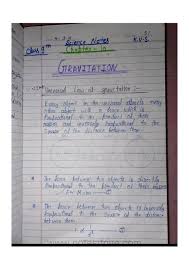 Science Notes
Class 9th
Chapter - 10
K.V.S.
GRAVITATION
Universal Law of gravitation :-
Every object in the universe attracts every
other object with a force which is
proportional to the product of their
masses and inversely proportional to the
square of the distance between them.
The force between two objects is directly
proportional to the product of their masses
The force between two objects is inversely
proportional to the square of the distance
between them